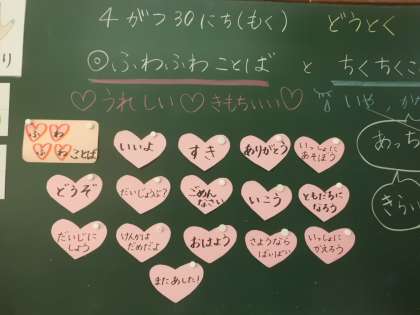 り
4がつ30にち(もく) どうとく
◎ふわふわことば と ちくちくこ
♡うれしい♡きもちいい♡ いや,か
あっち
きらい
ふわ
ふわことば
いいよ
すき
ありがとう
いっしょに
あそぼう
どうぞ
だいじょうぶ?
ごめん
なさい
いこう
ともだちに
なろう
だいじに
しよう
けんかは
だめだよ
おはよう
さようなら
ばいばい
いっしょに
かえろう
またあした!